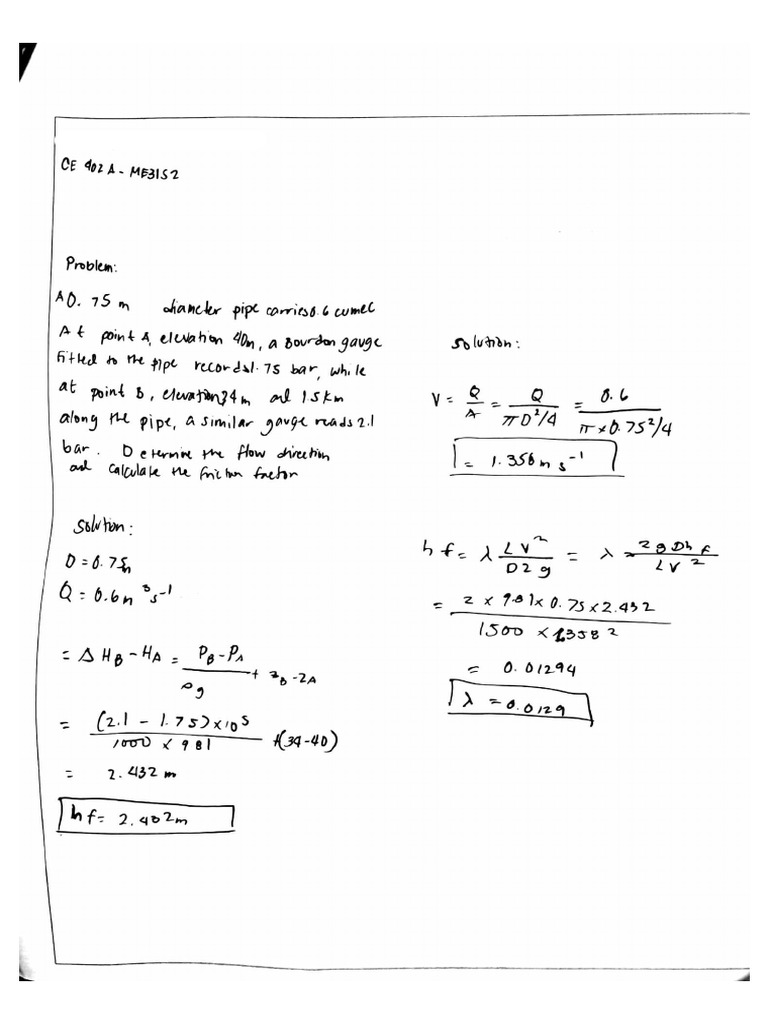 CE 402A - ME3152
Problem:
A 0.75 m diameter pipe carries 0.6 cumec
At point A, elevation 40m, a Bourdon gauge
fitted to the pipe records 1.75 bar, while
at point B, elevation 34m and 1.5km
along the pipe, a similar gauge reads 2.1
bar. Determine the flow direction
and calculate the friction factor
Solution:
D = 0.75m
Q = 0.6m³s⁻¹
= Δ H_B - H_A = P_B - P_A / ρg + z_B - z_A
= (2.1 - 1.75) x 10⁵ / 1000 x 981 + (34-40)
= 2.432 m
hf = 2.402m
Solution:
V = Q/A = Q / πD²/4 = 0.6 / π x 0.75²/4
= 1.358 m s⁻¹
hf = λ LV² / D2g = λ = 2gDhf / LV²
= 2 x 9.81 x 0.75 x 2.432 / 1500 x 1.358²
= 0.01294
λ = 0.0129